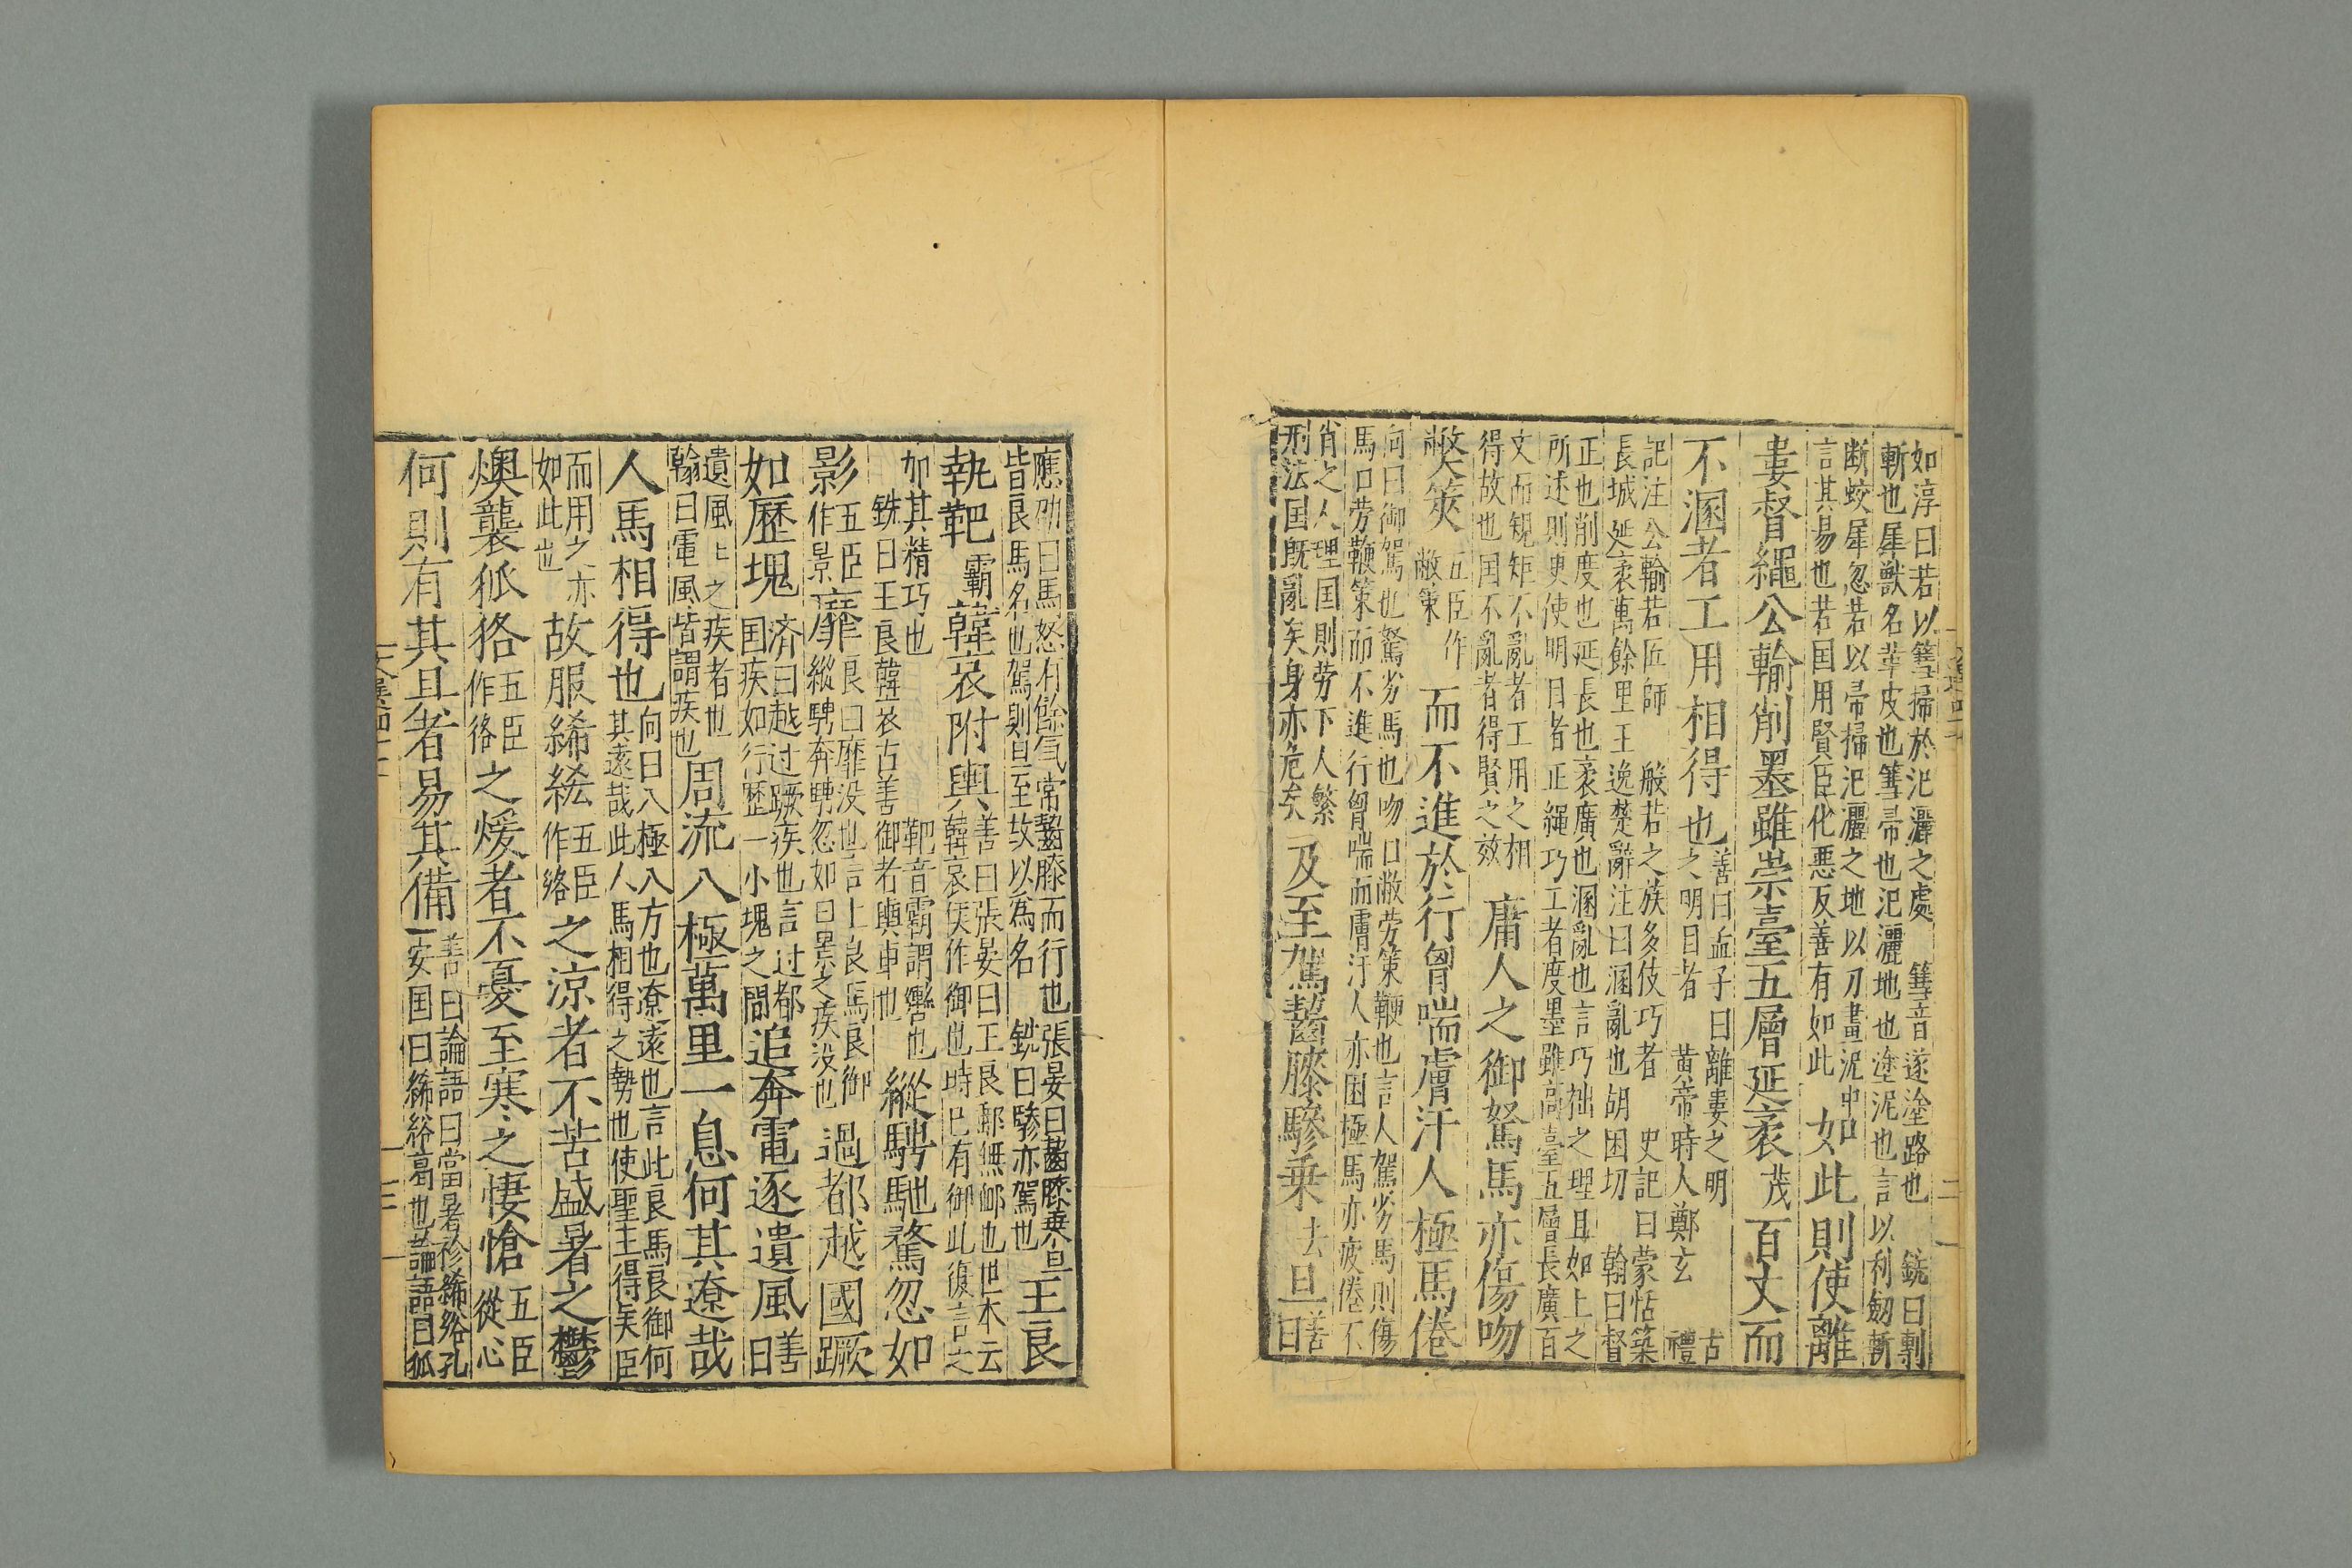 如淳曰若以篲掃於汜灑之處　篲音遂塗路也　銑曰剸
斬也犀獸名革皮也篲帚也汜灑地也塗泥也言以利劔斬
断蛟犀忽若以帚掃汜灑之地以刀畫泥中
言其易也若国用賢臣化悪反善有如此　如此則使離
婁督繩公輸削墨雖崇臺五層延袤茂百丈而
不溷者工用相得也　善曰孟子曰離婁之明　古
之明目者　黄帝時人鄭玄　禮
記注公輸若匠師　般若之族多伎巧者　史記曰蒙恬築
長城延袤萬餘里王逸楚辭注曰溷亂也胡困切　翰曰督
正也削度也延長也袤廣也溷亂也言巧拙之理且如上之
所述則更使明目者正繩巧工者度墨雖高臺五層長廣百
丈而規矩不亂者工用之相
得故也国不亂者得賢之效　庸人之御駑馬亦傷吻
敝筴　五臣作敝策　而不進於行胷喘膚汗人極馬倦
向曰御駕也駑劣馬也吻口敝劳策鞭也言人駕劣馬則傷
馬口劳鞭策而不進行胷喘而膚汗人亦困極馬亦疲倦不
肖之人理国則劳下人繁
刑法国既亂矣身亦危矣　及至駕齧膝驂乗去旦善曰
應劭曰馬怒有餘氣常齧膝而行也張晏曰齧膝乗旦
皆良馬名也駕則旦至故以為名　銑曰驂亦駕也　王良
執靶霸韓哀附輿　善曰張晏曰王良郵無卹也世本云
韓哀侯作御也時已有御此復言之
加其精巧也　靶音霸謂轡也
銑曰王良韓哀古善御者輿車也　縱騁馳騖忽如
影五臣作景靡　良曰靡没也言上良馬良御
縱騁奔騁忽如日景之疾没也　過都越國蹶
如歷塊　济曰越过蹶疾也言过都
国疾如行歷一小塊之間　追奔電逐遺風善曰
遺風上之疾者也
翰曰電風皆謂疾也　周流八極萬里一息何其遼哉
人馬相得也　向曰八極八方也遼遠也言此良馬良御何
其遠哉此人馬相得之勢也使聖主得矣臣
而用之亦
如此也　故服絺綌　五臣作綌　之涼者不苦盛暑之鬱
燠襲狐狢　五臣作狢　之煖者不憂至寒之悽愴　五臣從心
何則有其具者易其備　善曰論語曰當暑袗絺綌孔
安国曰絺綌葛也論語曰狐